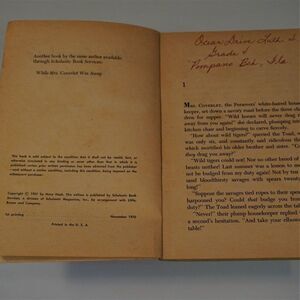 Another book by the same author available
through Scholastic Book Services:
While Mrs. Coverlet Was Away
This book is sold subject to the condition that it shall not be resold, lent, or
otherwise circulated in any binding or cover other than that in which it is
published—unless prior written permission has been obtained from the publisher—
and without a similar condition, including this condition, being imposed on the
subsequent purchaser.
Copyright © 1961 by Mary Nash. This edition is published by Scholastic Book
Services, a division of Scholastic Magazines, Inc. by arrangement with Little,
Brown and
1st printing
November 1970
Printed in the U. S. A.
Ocean Drive Luth S
Grade 4
Pompano Bch, Fla
1
MRS. COVERLET, the Persevers' white-haired house-
keeper, set down a savory roast before the three chil-
dren for supper. "Wild horses will never drag me
away from you again!" she declared, plumping into her
kitchen chair and beginning to carve fiercely.
"How about wild tigers?" queried the Toad, who
was only six, and constantly said ridiculous things
which mortified his older brother and sister. "Could
they drag you away?"
"Wild tigers could not; Nor no other breed of
beasts neither! Last summer was a lesson to me, and
not be budged from my duty again! Not by ten
sand bloodthirsty savages with spears twenty
long!"
"Suppose the savages tied ropes to their spears
harpooned you? Could that budge you from
duty?" The Toad leaned eagerly across the
"Never!" their plump housekeeper replied
a second's hesitation. "And take your elbows
table!"